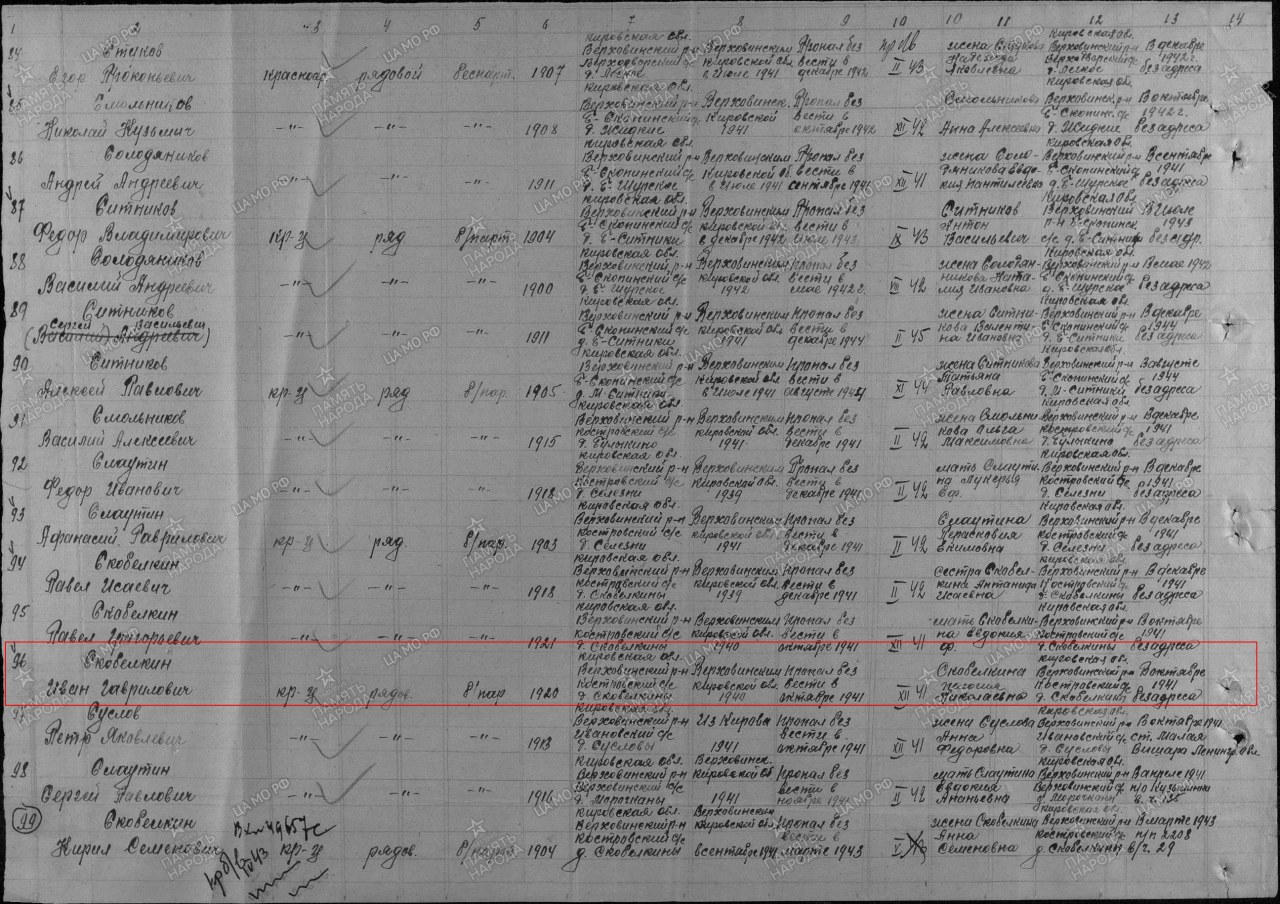 1 2 3 4 5 6 7 8 9 10 10 11 12 13 14
84 Стиков
Егор Прокопьевич Красноар. рядовой беспарт. 1907 Кировская обл. Верховинский р-н Верховинским Кировской обл. в Июле 1941 Пропал без вести в декабре 1942 II 43 жена Яковлевна Кировская обл. Верховинский р-н В декабре 1942 г. без адреса
85 Смольников
Николай Кузьмич -"- -"- -"- 1908 Кировская обл. Верховинский р-н Е-Скопинский д. Жидкие Верховинск. Кировской 1941 Пропал без вести в октябре 1942 XII 42 Анна Алексеевна Кировская обл. Верховинск. р-н Е-Скопин. д. Жидкие В октябре 1942 г. без адреса
86 Солодяников
Андрей Андреевич -"- -"- -"- 1911 Кировская обл. Верховинский р-н Е-Скопинский д. Е-Шурское Верховинским Кировской об. в Июле 1941 Пропал без вести в сентябре 1941 XII 41 жена Солодяникова Евдокия Пантилеевна Кировская обл. Верховинский р-н Е-Скопинский д. Е-Шурское В сентябре 1941 без адреса
87 Ситников
Федор Владимирович кр-ц ряд б/парт. 1904 Кировская обл. Верховинский р-н Е-Скопинский с/с д. Е-Ситники Верховинским Кировской обл. в декабре 1942 Пропал без вести в Июле 1943 IX 43 Ситников Антон Васильевич Кировская обл. Верховинский р-н Е-Скопинск. с/с д. Е-Ситники В Июле 1943 без адр.
88 Солодяников
Василий Андреевич -"- -"- -"- 1900 Кировская обл. Верховинский р-н Е-Скопинский с/с д. Е-Шурское Верховинским Кировской обл. 1942 Пропал без вести мае 1942 г. VIII 42 жена Солодяникова Наталия Ивановна Кировская обл. Верховинский р-н Е-Скопинский с/с д. Е-Шурское В мае 1942 без адреса
89 Ситников
Сергей Васильевич
(Василий Андреевич) -"- -"- -"- 1911 Кировская обл. Верховинский р-н Е-Скопинский с/с д. Е-Ситники Верховинским Кировской обл. 1941 Пропал без вести в декабре 1944 II 45 жена Ситникова Валентина Ивановна Кировская обл. Верховинский р-н Е-Скопинский с/с д. Е-Ситники В декабре 1944 без адреса
90 Ситников
Алексей Павлович кр-ц ряд б/пар. 1905 Кировская обл. Верховинский р-н Е-Скопинский с/с д. М-Ситники Верховинским Кировской обл. в Июле 1941 Пропал без вести в августе XI 44 жена Ситникова Татьяна Павловна Кировская обл. Верховинский р-н Е-Скопинский с/с д. М-Ситники В августе 1944 без адреса
91 Смольников
Василий Алексеевич -"- -"- -"- 1915 Кировская обл. Верховинский р-н Костровский с/с Верховинским Кировской обл. 1941 Пропал без вести в декабре 1941 II 42 жена Смольникова Ольга Максимовна Кировская обл. Верховинский р-н Костровский с/с В декабре 1941 без адреса
92 Слаутин
Федор Иванович -"- -"- -"- 1918 Кировская обл. Верховинский р-н Костровский с/с д. Селезни Верховинским Кировской обл. 1939 Пропал без вести в декабре 1941 II 42 мать Слаутина Лукерья Еф. Кировская обл. Верховинский р-н Костровский с/с д. Селезни В декабре 1941 без адреса
93 Слаутин
Афанасий Гаврилович кр-ц ряд б/пар. 1903 Кировская обл. Верховинский р-н Костровский с/с д. Селезни Верховинским Кировской обл. 1941 Пропал без вести в декабре 1941 II 42 Слаутина Парасковия Екимовна Кировская обл. Верховинский р-н Костровский с/с д. Селезни В декабре 1941 без адреса
94 Скобелкин
Павел Исаевич -"- -"- -"- 1918 Кировская обл. Верховинский р-н Костровский с/с д. Скобелкины Верховинским Кировской обл. 1939 Пропал без вести в декабре 1941 II 42 сестра Скобелкина Антанида Исаевна Кировская обл. Верховинский р-н Костровский с/с д. Скобелкины В декабре 1941 без адреса
95 Скобелкин
Павел Григорьевич -"- -"- -"- 1921 Кировская обл. Верховинский р-н Костровский с/с д. Скобелкины Верховинским Кировской обл. 1940 Пропал без вести в октябре 1941 XII 41 мать Скобелкина Евдокия Ф. Кировская обл. Верховинский р-н Костровский с/с д. Скобелкины В октябре 1941 без адреса
96 Скобелкин
Иван Гаврилович кр-ц рядов. б/пар 1920 Кировская обл. Верховинский р-н Костровский с/с д. Скобелкины Верховинским Кировской обл. 1940 Пропал без вести в октябре 1941 XII 41 Скобелкина Николаевна Кировская обл. Верховинский р-н Костровский с/с д. Скобелкины В октябре 1941 без адреса
97 Суслов
Петр Яковлевич -"- -"- -"- 1913 Кировская обл. Верховинский р-н Ивановский с/с д. Сусловы Из Кирова 1941 Пропал без вести в октябре 1941 XII 41 жена Суслова Анна Федоровна Кировская обл. Верховинский р-н Ивановский с/с д. Сусловы В октябре 1941 ст. Малая Вишара Ленингр. обл.
98 Слаутин
Сергей Павлович -"- -"- -"- 1916 Кировская обл. Верховинский р-н Верховинский д. Морогканы Верховинск. Кировской об 1941 Пропал без вести в ноябре 1941 II 42 мать Слаутина Евдокия Ананьевна Кировская обл. Верховинский р-н Верховинский с/с д. Морогканы В апреле 1941 п/о
99 Скобелкин
Кирил Семенович кр-ц рядов. б/парт 1904 Кировская обл. Верховинский р-н Костровский с/с д. Скобелкины Верховинским Кировской обл. в сентябре 1941 Пропал без вести в марте 1943 V жена Скобелкина Анна Семеновна Кировская обл. Верховинский р-н Костровский с/с д. Скобелкины В марте 1943 п/п 2208 в/ч. 29
Вх № 49657с
ЦАМО РФ
ПАМЯТЬ НАРОДА